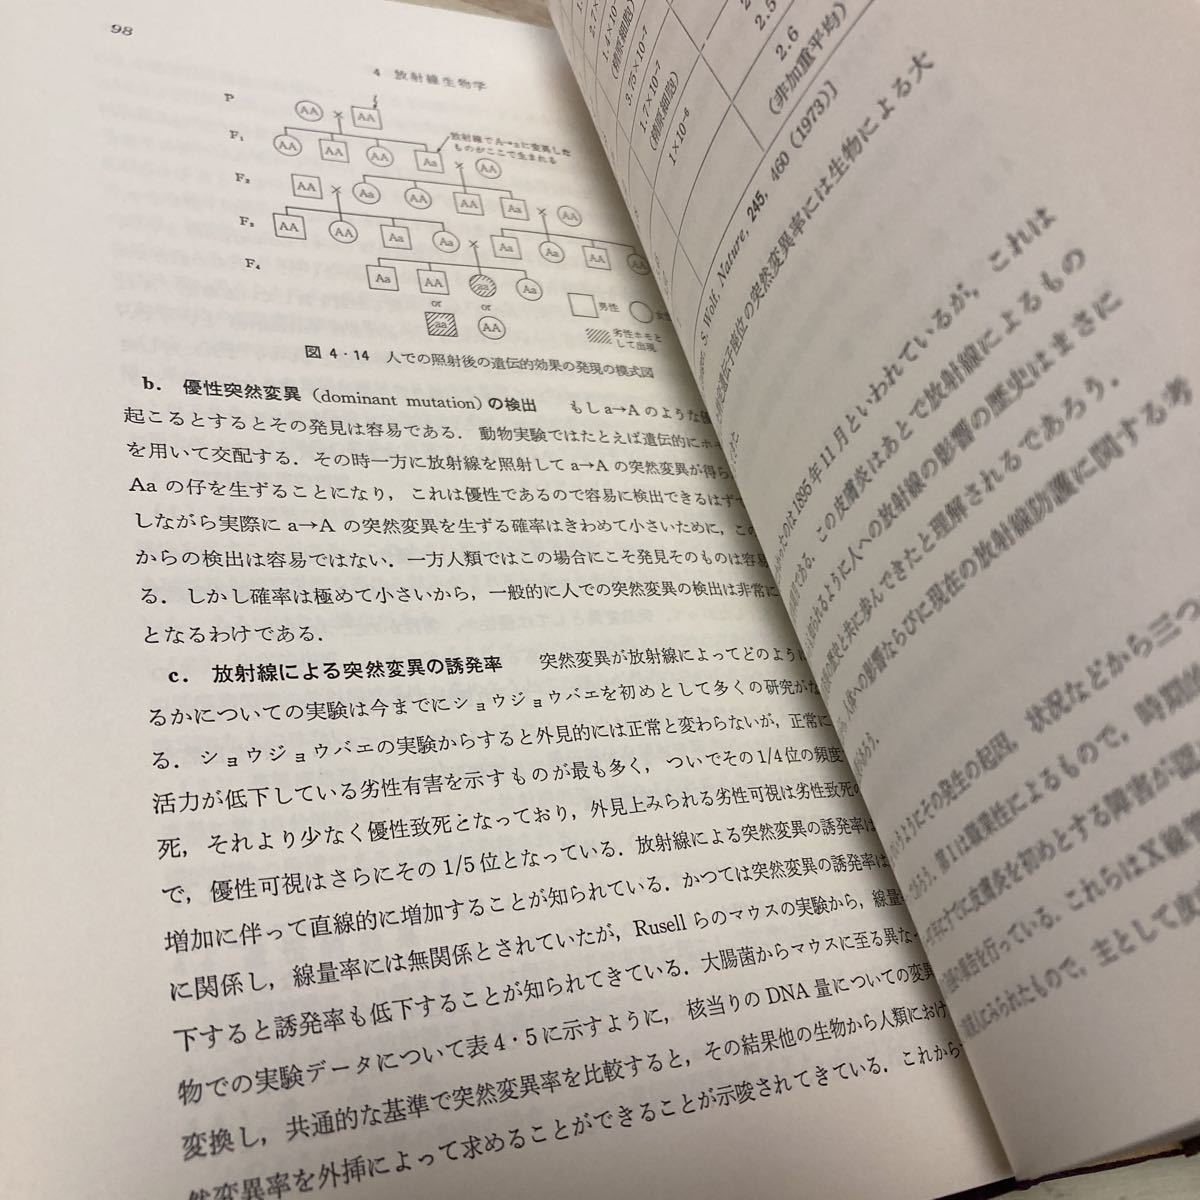 98
4 放射線生物学
P
AA × AA
F₁
AA AA AA Aa × AA
放射線でA→aに変異した
ものがここで生まれる
F₂
AA × Aa AA AA Aa × AA
F₃
AA AA Aa Aa × Aa Aa AA Aa
F₄
Aa AA aa Aa
or or
aa AA
男性
劣性ホモと
して出現
図 4・14 人での照射後の遺伝的効果の発現の模式図
b. 優性突然変異 (dominant mutation) の検出 もし a→A のような
起こるとするとその発見は容易である．動物実験ではたとえば遺伝的にホ
を用いて交配する．その時一方に放射線を照射して a→A の突然変異が得
Aa の仔を生ずることになり，これは優性であるので容易に検出できるはず
しながら実際に a→A の突然変異を生ずる確率はきわめて小さいために，この
からの検出は容易ではない．一方人類ではこの場合にこそ発見そのものは容易
る．しかし確率は極めて小さいから，一般的に人での突然変異の検出は非常に
となるわけである．
c. 放射線による突然変異の誘発率 突然変異が放射線によってどのように
るかについての実験は今までにショウジョウバエを初めとして多くの研究が
る．ショウジョウバエの実験からすると外見的には正常と変わらないが，正常に
活力が低下している劣性有害を示すものが最も多く，ついでその1/4位の頻度
死，それより少なく優性致死となっており，外見上みられる劣性可視は劣性致死の
で，優性可視はさらにその1/5位となっている．放射線による突然変異の誘発率は
増加に伴って直線的に増加することが知られている．かつては突然変異の誘発率は
に関係し，線量率には無関係とされていたが，Rusell らのマウスの実験から，線量
下すると誘発率も低下することが知られてきている．大腸菌からマウスに至る異な
物での実験データについて表4・5に示すように，核当りの DNA 量についての変異
変換し，共通的な基準で突然変異率を比較すると，その結果他の生物から人類におけ
然変異率を外挿によって求めることができることが示唆されてきている．これから
2.7×
1.4×10
(精原細胞)
3.75×10⁻⁷
1.7×10⁻⁷
(精原細胞)
1×10⁻⁶
2.5
2.6
(非加重平均)
S. Wolf, Nature, 245, 460 (1973)]
遺伝子座位の突然変異率には生物による大
かったのは1895年11月といわれているが，これは
である．この皮膚炎はあとで放射線によるもの
知られるように人への放射線の影響の歴史はまさに
の歴史と共に歩んできたと理解されるであろう．
人体への影響ならびに現在の放射線防護に関する考
ようにその発生の起因，状況などから三つ
．第1は職業性によるもので，時間的
すでに皮膚炎を初めとする障害が
の報告を行っている．これらはX線管
にみられたもので，主として